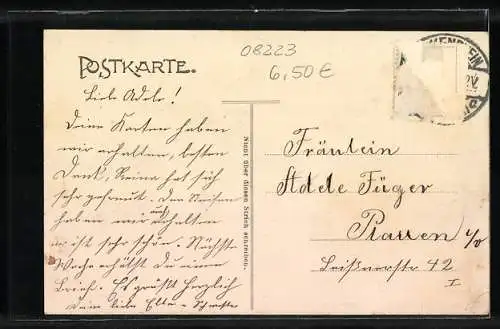 08223
6,50 €
POSTKARTE.
Liebe Adele!
Deine Karten haben
wir erhalten, besten
Dank, Reina hat sich
sehr gefreut. Den
haben wir auch erhalten
er ist sehr schön. Nächste
Woche erhältst Du einen
Brief. Es grüßt herzlich
Deine liebe
Nicht über diesen Strich schreiben.
Fräulein
Adele Füger
Plauen i/V
42
I